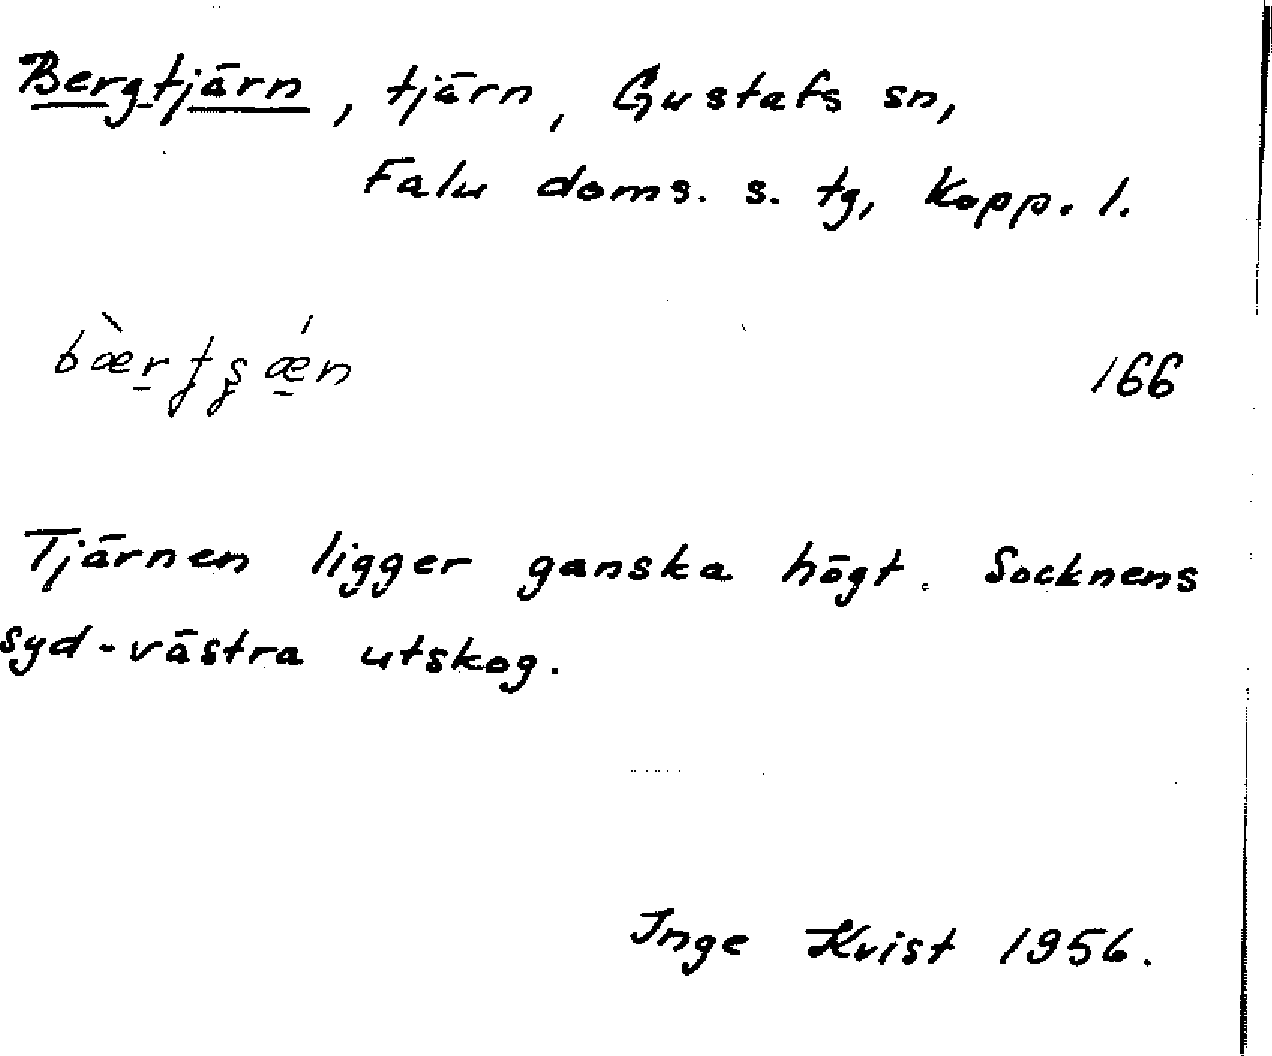 Bergtjärn, tjärn, Gustafs sn,
Falu doms. s. tg, Kopp. l.
166
Tjärnen ligger ganska högt. Socknens
syd-västra utskog.
Inge Kvist 1956.